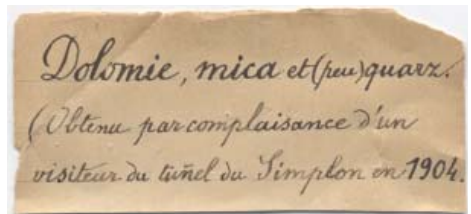 Dolomie, mica et (peu) quarz.
(Obtenu par complaisance d'un
visiteur du tuñel du Simplon en 1904.